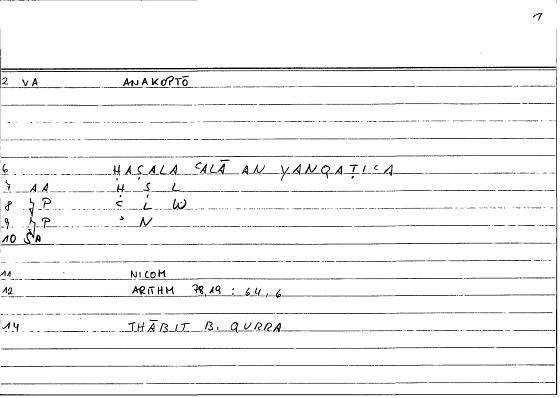 1
2 VA ANAKOPTŌ
6 ḤAṢALA ʿALĀ AN YANQAṬIʿA
7 AA Ḥ Ṣ L
8 P ʿ L W
9 P ʾ N
10 SA
11 NICOM
12 ARITHM 78,19 : 64,6
14 THĀBIT B. QURRA